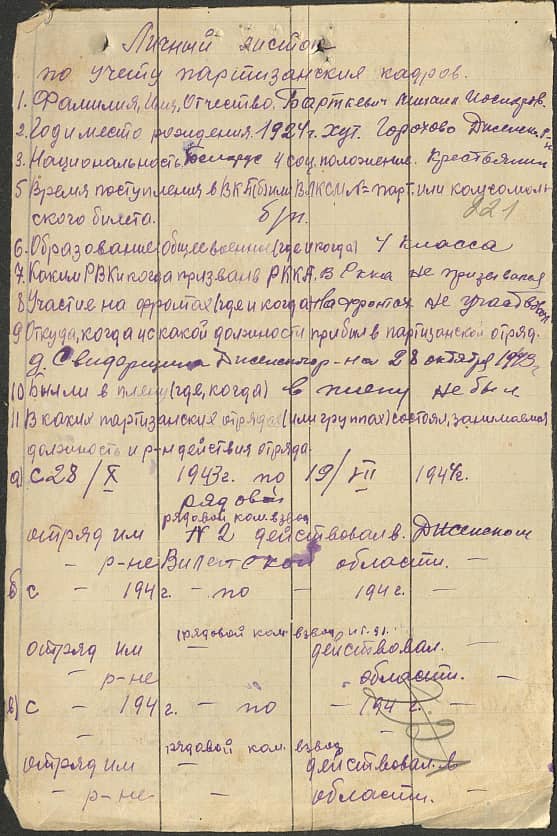 Личный листок
по учету партизанских кадров.
1. Фамилия, Имя, Отчество. Барткевич Михаил Иосифов.
2. Год и место рождения. 1924 г. хут. Горохово Дисненск
р-н
3. Национальность. Беларус 4 соц. положение. Крестьянин
5 Время поступления в ВКП(б) или ВЛКСМ № парт. или комсомоль
ского билета. б/п. 221
6. Образование общее военное (где и когда) 4 класса
7. Каким РВК и когда призван в РККА. в Ркка не призывался
8. Участие на фронтах (где и когда) на фронтах не участвовал
9 Откуда, когда и с какой должности прибыл в партизанской отряд.
д. Дисненск р-на 28 октября 1943 г
10 Были ли в плену (где, когда) в плену не был
11 В каких партизанских отрядах (или группах) состоял, занимаемая
должность и р-н действия отряда.
а) с 28/X 1943 г. по 19/VII 1944 г.
рядовой
рядовой ком. взвод
отряд им № 2 действовал в. Дисненском
- р-не Вилейской области. -
б с - 194 г. - по - 194 г. -
рядовой ком. взвод
отряд им - действовал. -
- р-не области. -
в) с - 194 г. - по - 194 г. -
рядовой ком. взвод
отряд им - действовал. в
- р-не - области. -